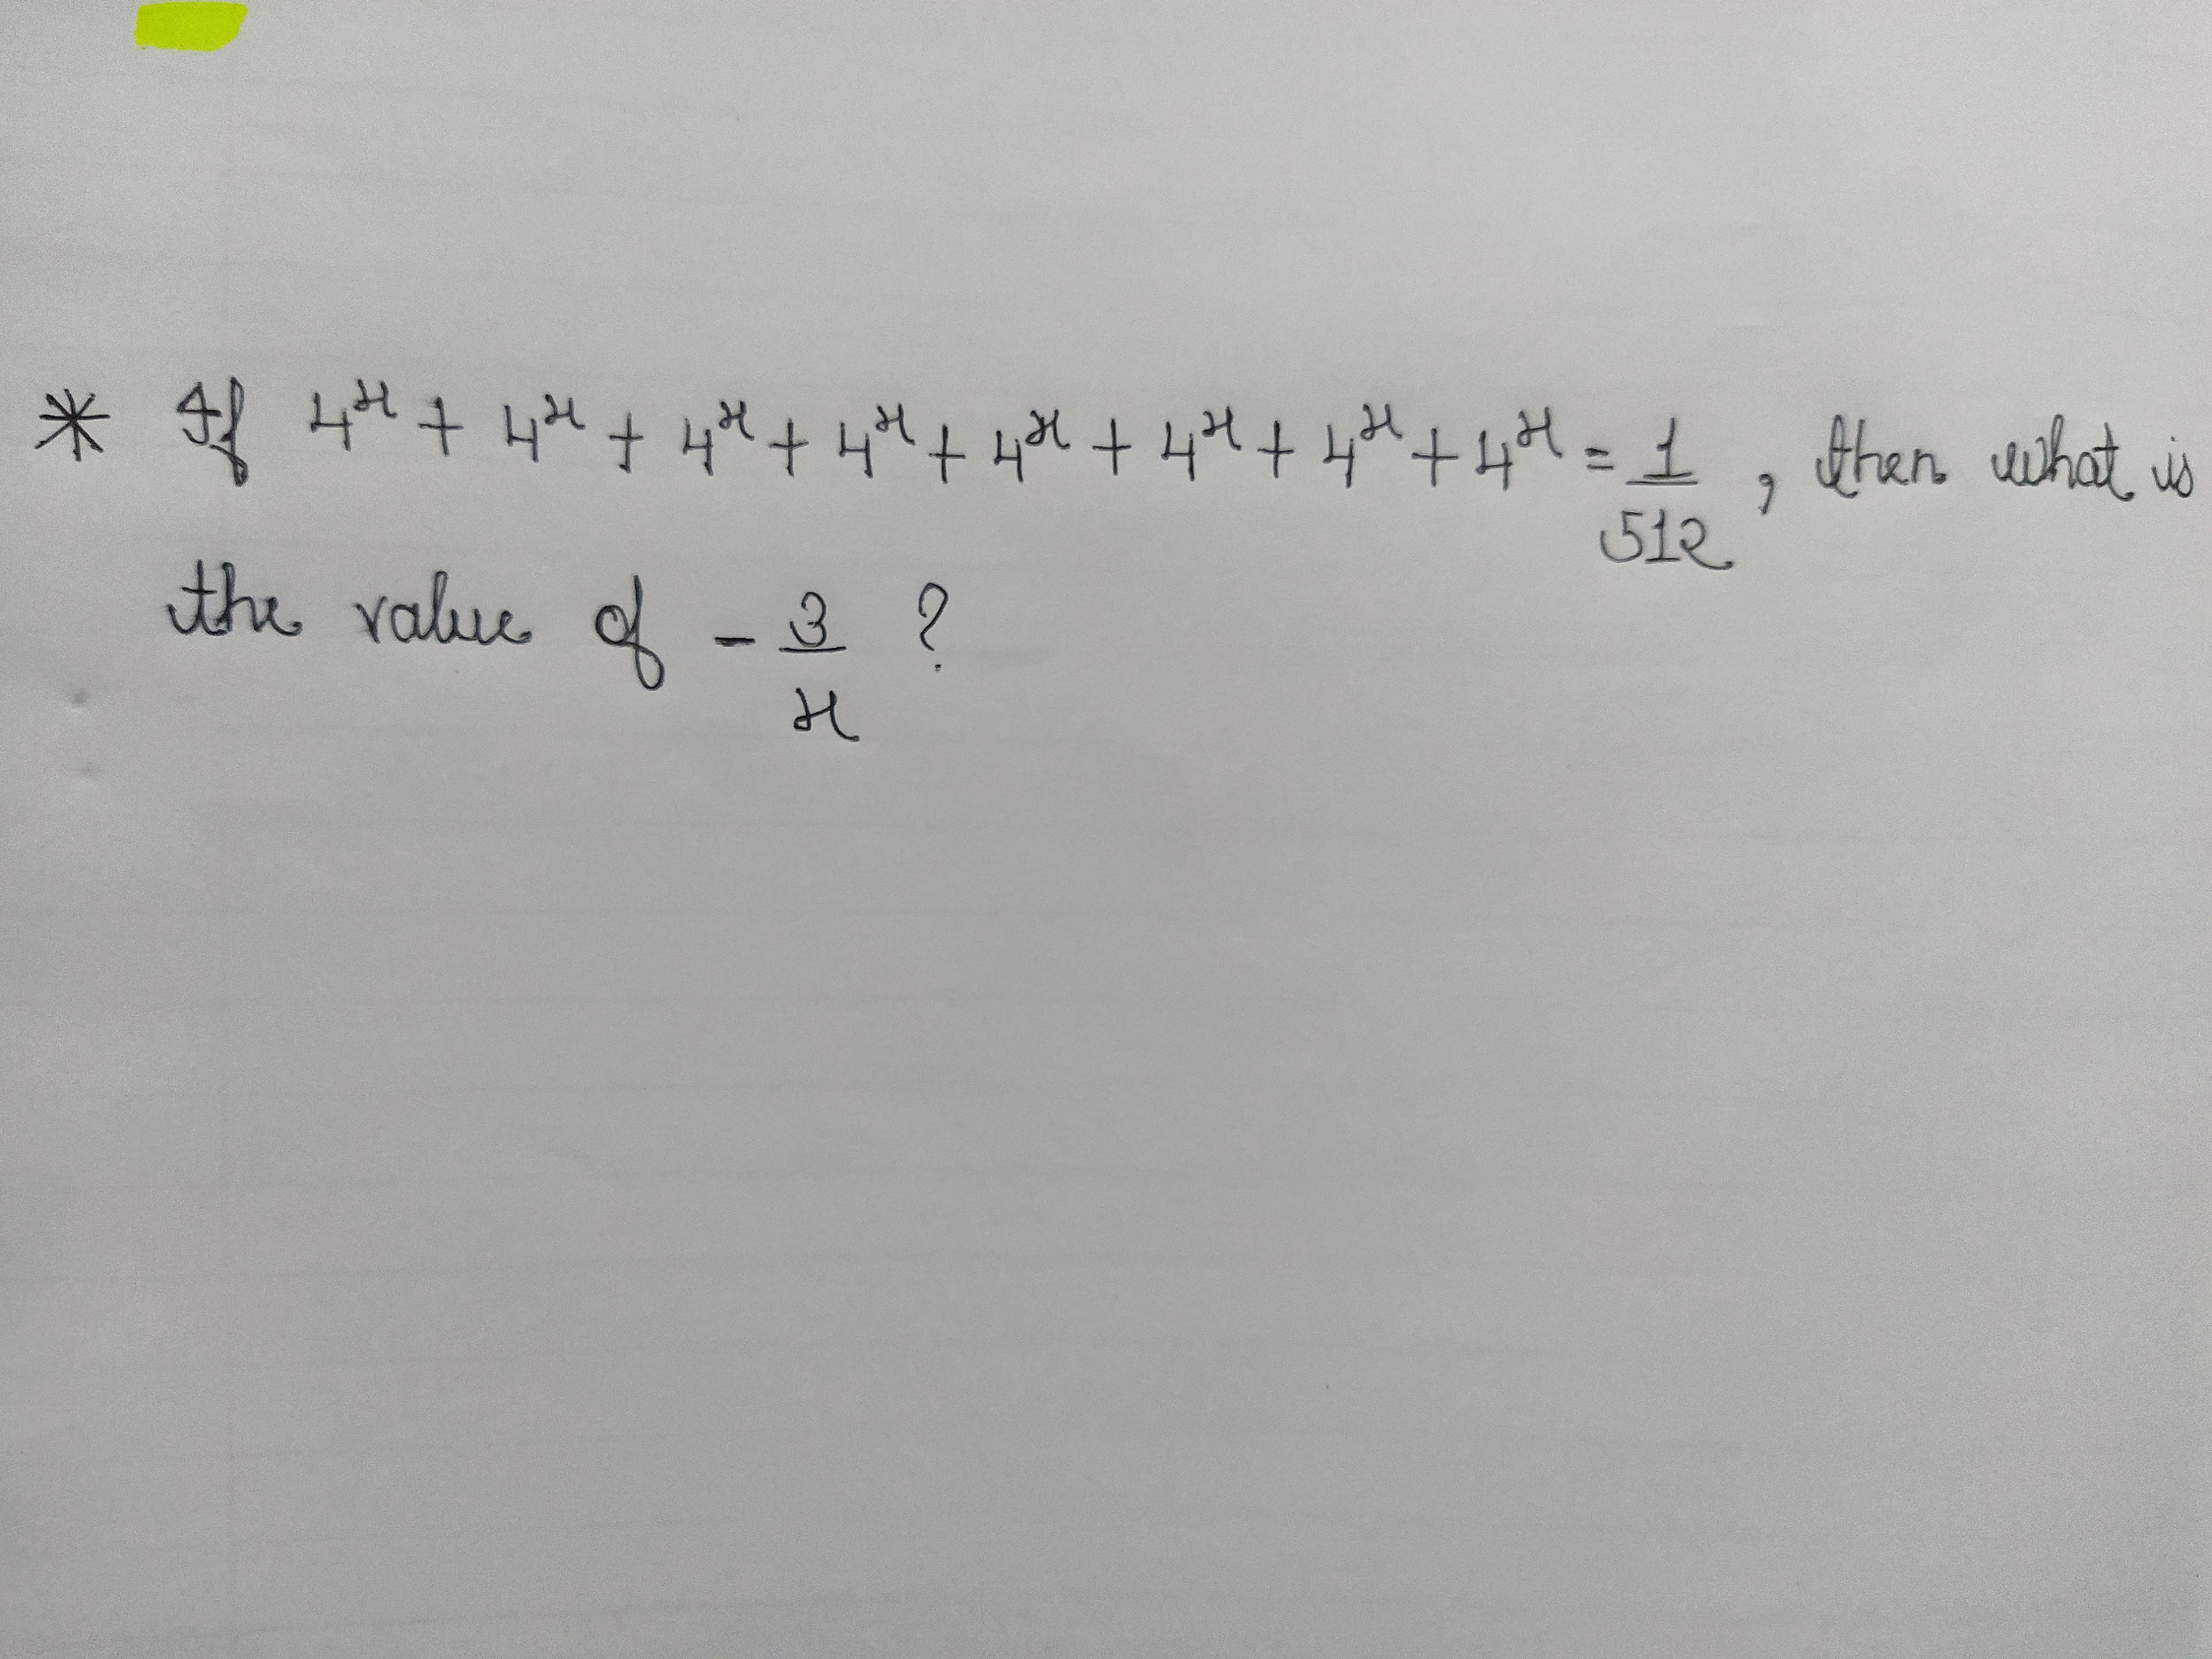 * If 4^x + 4^x + 4^x + 4^x + 4^x + 4^x + 4^x + 4^x = 1/512, then what is
the value of - 3/x ?